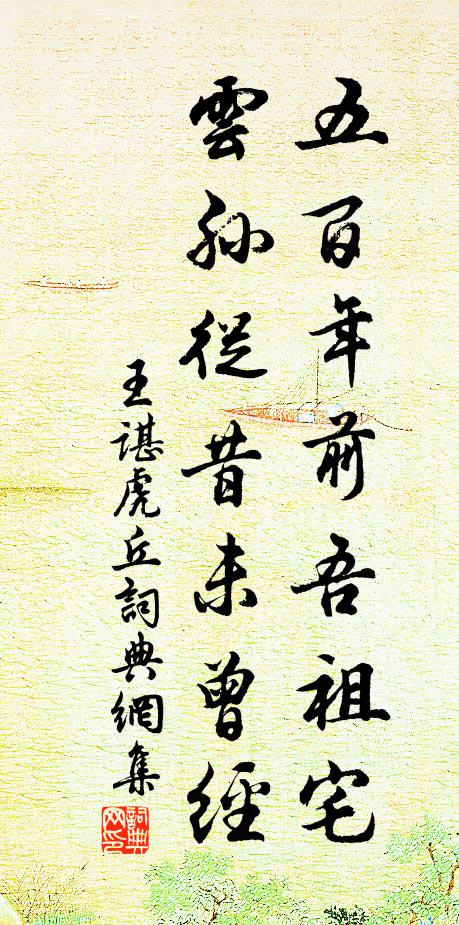 五百年前吾祖宅
雲孫從昔未曾經
王諶虎丘詞典網集
詞典網印